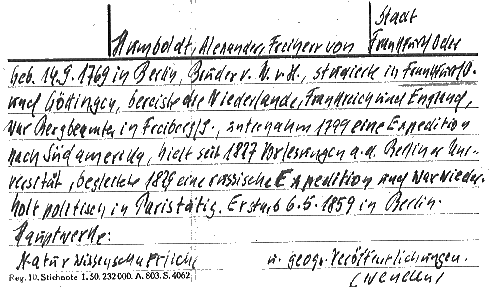 Stadt
Humboldt, Alexander Freiherr von Frankfurt/Oder
Geb. 14.9.1769 in Berlin, Bruder v. W. v. H., studierte in Frankfurt/O.
und Göttingen, bereiste die Niederlande, Frankreich und England,
war Bergbeamter in Freiberg/S., unternahm 1799 eine Expedition
nach Südamerika, hielt seit 1827 Vorlesungen a. d. Berliner Uni-
versität, begleitete 1829 eine russische Expedition und war wieder-
holt politisch in Paris tätig. Er starb 6.5.1859 in Berlin.
Hauptwerke:
Naturwissenschaftliche u. geogr. Veröffentlichungen.
Reg. 10. Stichnote 1. 50. 232000. A. 803. S. 4062